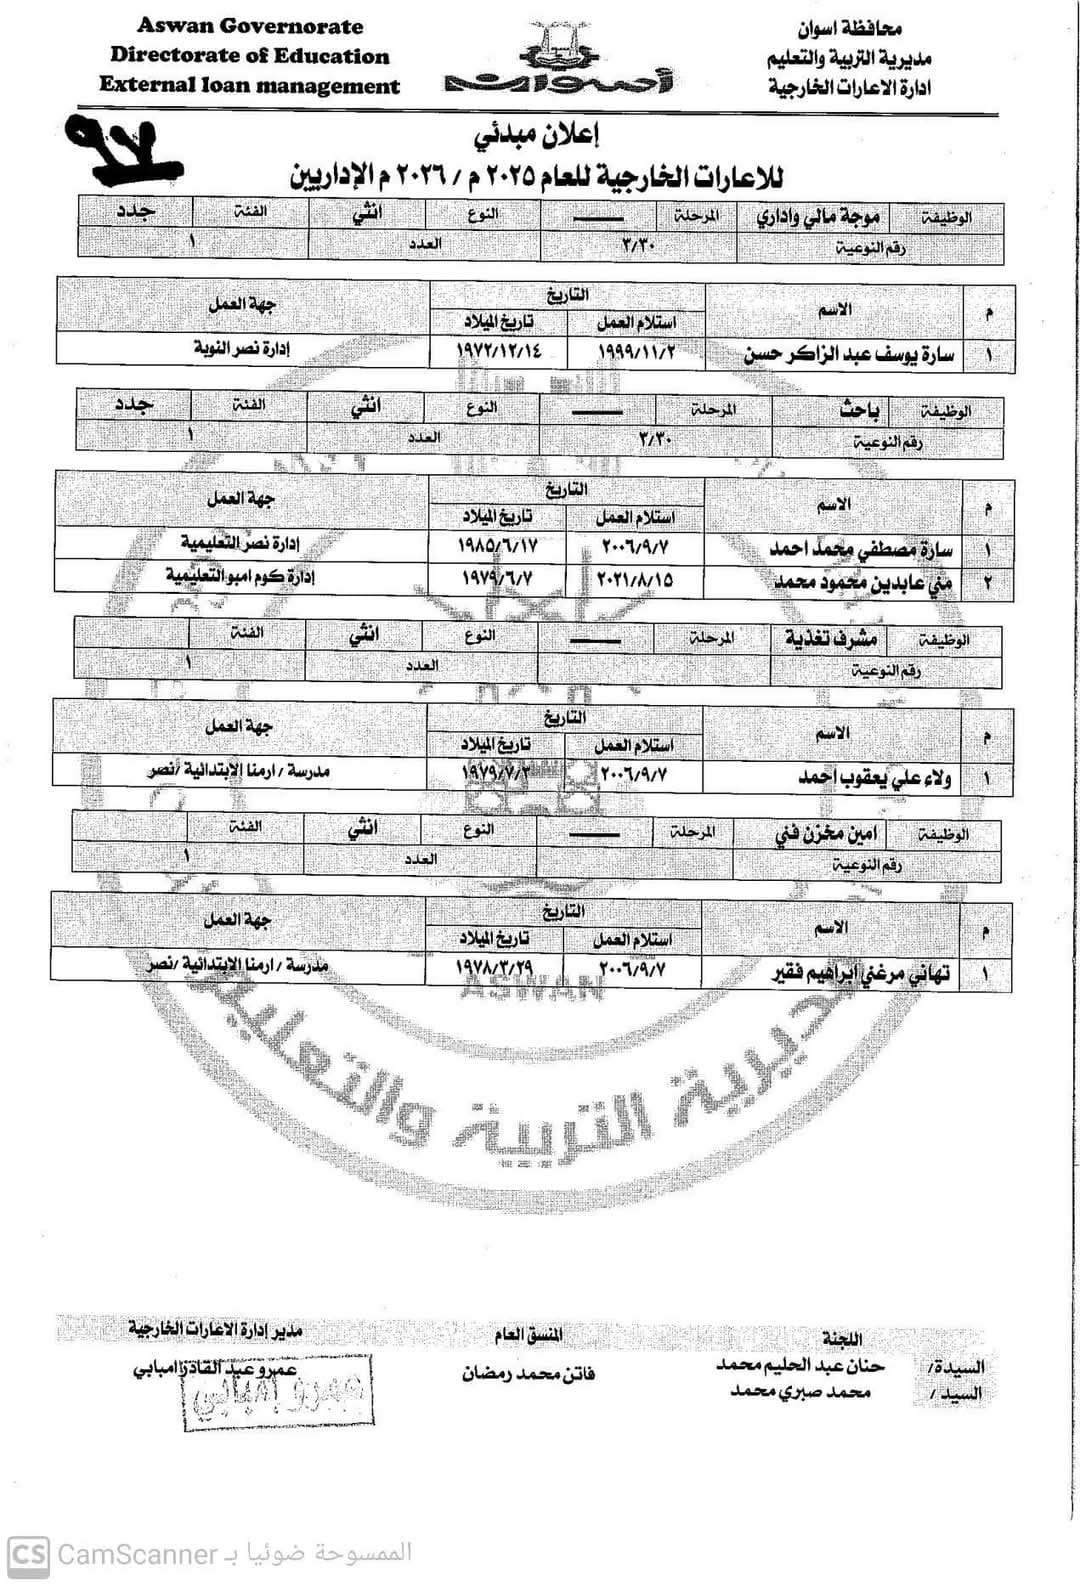 Aswan Governorate
Directorate of Education
External loan management
أسوان
محافظة اسوان
مديرية التربية والتعليم
ادارة الاعارات الخارجية
٩٧
إعلان مبدئي
للاعارات الخارجية للعام ٢٠٢٥ م / ٢٠٢٦ م الإداريين
الوظيفة موجة مالي واداري المرحلة ــــــ النوع انثي الفئة جدد
رقم النوعية ٣/٣٠ العدد ١
م الاسم التاريخ جهة العمل
استلام العمل تاريخ الميلاد
١ سارة يوسف عبد الزاكر حسن ١٩٩٩/١١/٢ ١٩٧٢/١٢/١٤ إدارة نصر النوبة
الوظيفة باحث المرحلة ــــــ النوع انثي الفئة جدد
رقم النوعية ٣/٣٠ العدد ١
م الاسم التاريخ جهة العمل
استلام العمل تاريخ الميلاد
١ سارة مصطفي محمد احمد ٢٠٠٦/٩/٧ ١٩٨٥/٦/١٧ إدارة نصر التعليمية
٢ مني عابدين محمود محمد ٢٠٢١/٨/١٥ ١٩٧٩/٦/٧ إدارة كوم امبو التعليمية
الوظيفة مشرف تغذية المرحلة ــــــ النوع انثي الفئة
رقم النوعية العدد ١
م الاسم التاريخ جهة العمل
استلام العمل تاريخ الميلاد
١ ولاء علي يعقوب احمد ٢٠٠٦/٩/٧ ١٩٧٩/٧/٣ مدرسة / ارمنا الابتدائية / نصر
الوظيفة امين مخزن فني المرحلة ــــــ النوع انثي الفئة
رقم النوعية العدد ١
م الاسم التاريخ جهة العمل
استلام العمل تاريخ الميلاد
١ تهاني مرغني ابراهيم فقير ٢٠٠٦/٩/٧ ١٩٧٨/٣/٢٩ مدرسة / ارمنا الابتدائية / نصر
ASWAN
مديرية التربية والتعليم
اللجنة المنسق العام مدير إدارة الاعارات الخارجية
السيدة/ حنان عبد الحليم محمد فاتن محمد رمضان عمرو عبد القادر امبابي
السيد / محمد صبري محمد
عمرو إمبابي
CS CamScanner الممسوحة ضوئيا بـ